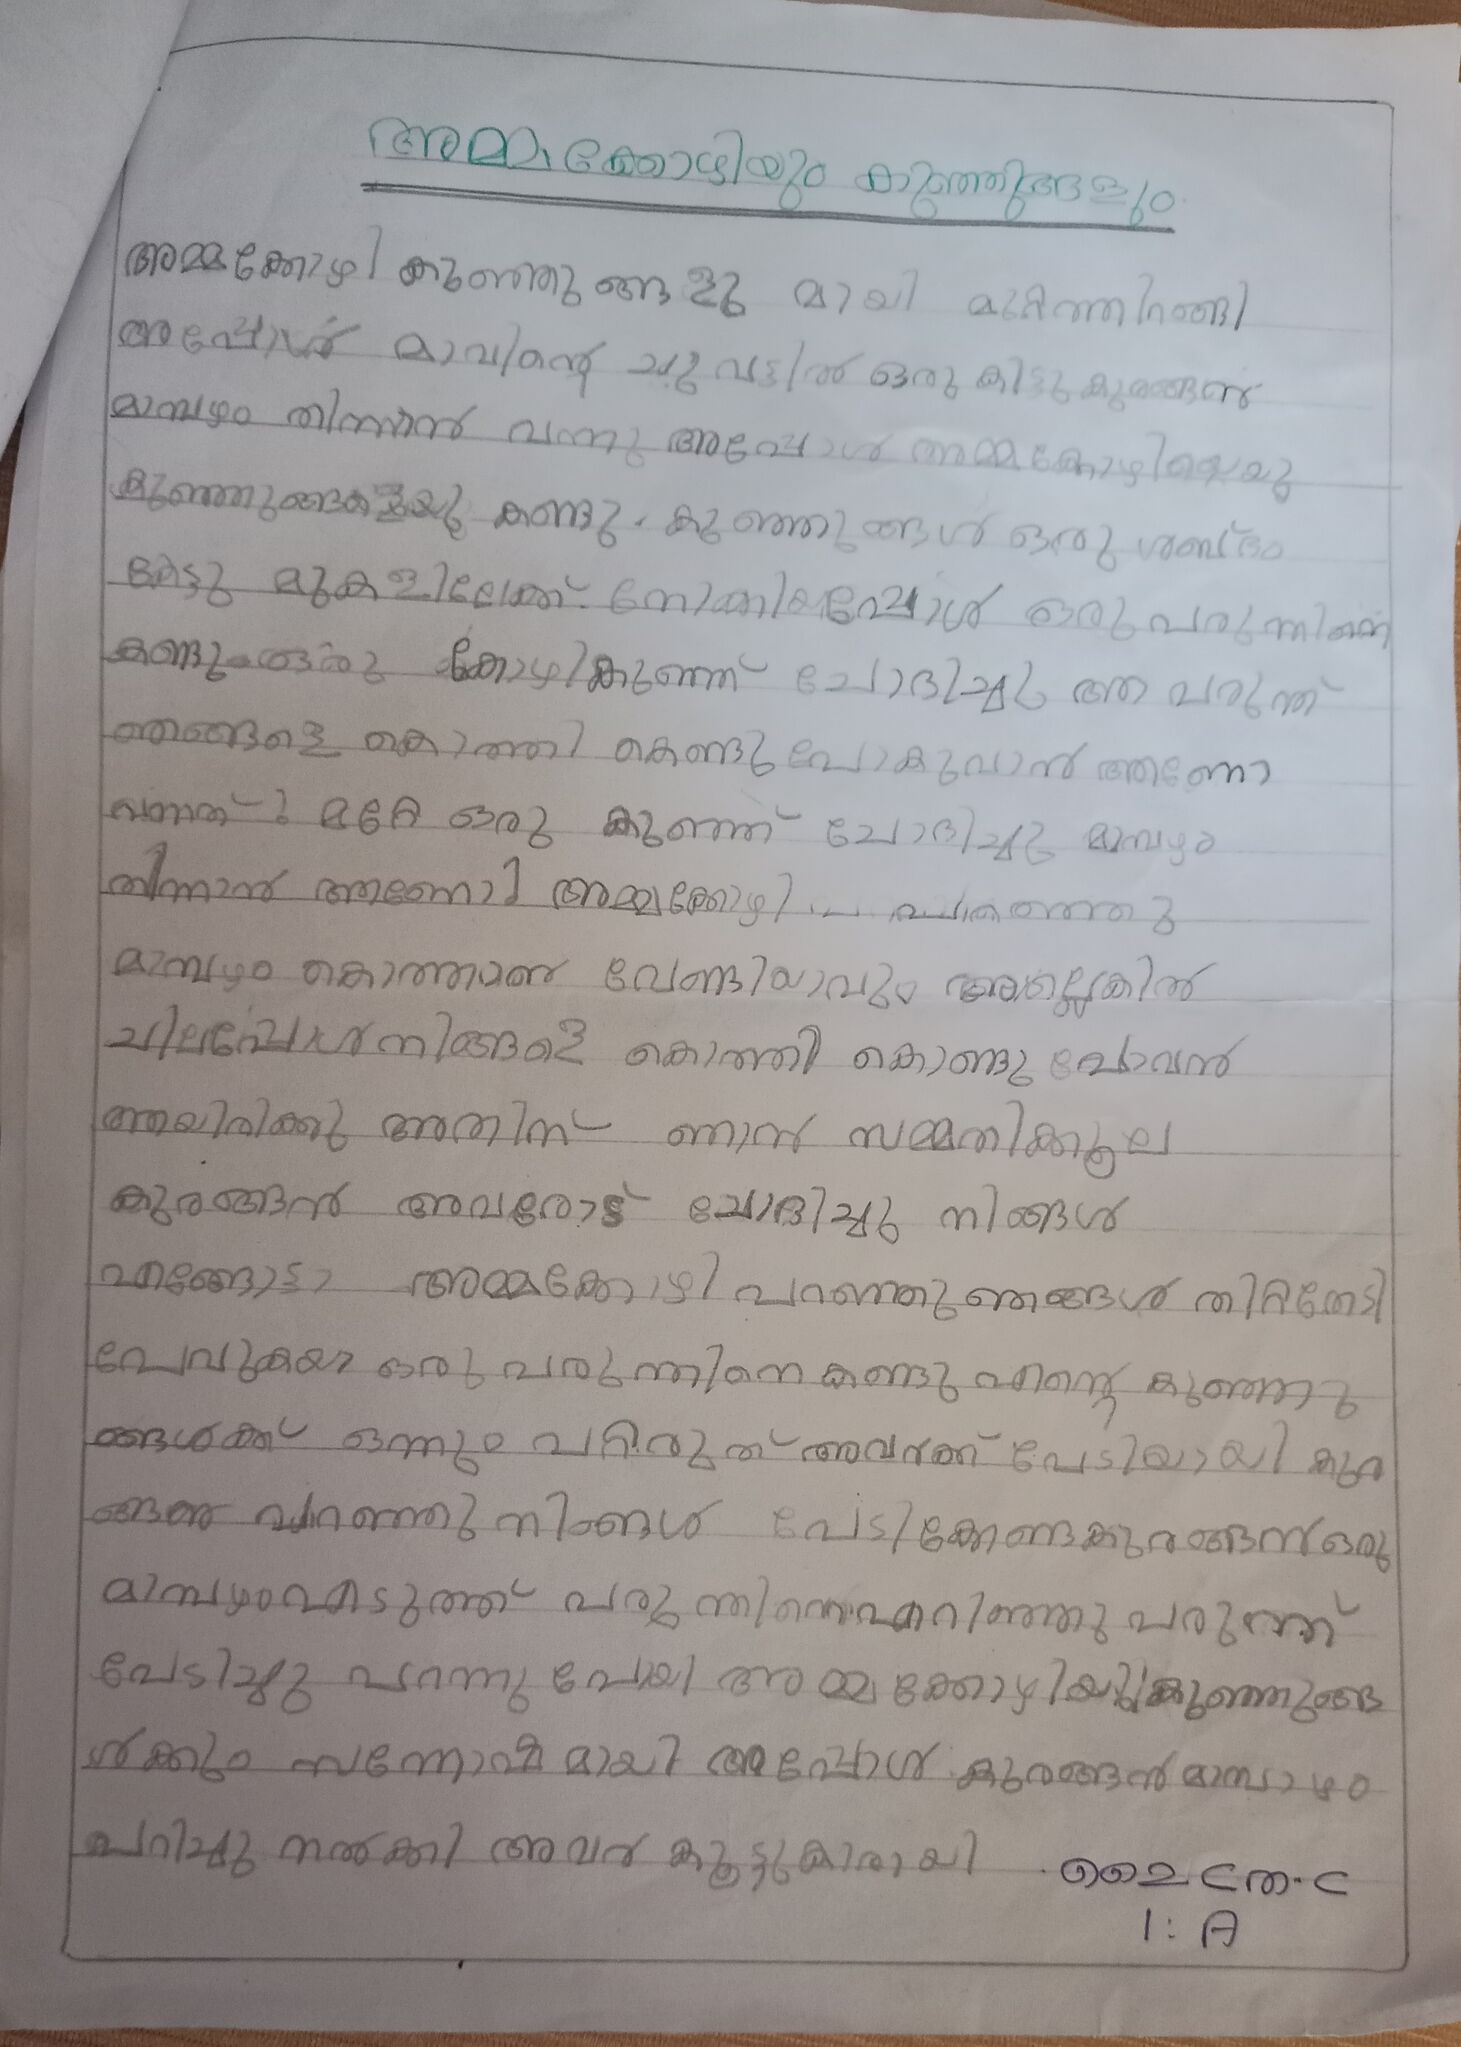 അമ്മക്കോഴിയും കുഞ്ഞുങ്ങളും
അമ്മക്കോഴി കുഞ്ഞുങ്ങളു മായി മുറ്റത്തിറങ്ങി
അപ്പോൾ മാവിന്റെ ചുവട്ടിൽ ഒരു കിട്ടു കുരങ്ങൻ
മാമ്പഴം തിന്നാൻ വന്നു അപ്പോൾ അമ്മക്കോഴിയെയു
കുഞ്ഞുങ്ങളെയു കണ്ടു. കുഞ്ഞുങ്ങൾ ഒരു ശബ്ദം
കേട്ടു മുകളിലേക്ക് നോക്കിയപ്പോൾ ഒരു പരുന്തിനെ
കണ്ടു ഒരു കോഴികുഞ്ഞ് ചോദിച്ചു ആ പരുന്ത്
ഞങ്ങളെ കൊത്തി കെണ്ടു പോകുവാൻ ആണോ
വന്നത്? മറ്റേ ഒരു കുഞ്ഞ് ചോദിച്ചു മാമ്പഴം
തിന്നാൻ ആണോ? അമ്മക്കോഴി പറഞ്ഞു
മാമ്പഴം കൊത്താൻ വേണ്ടിയാവും അല്ലെകിൽ
ചിലപ്പോൾ നിങ്ങളെ കൊത്തി കൊണ്ടു പോവൻ
ആയിരിക്കു അതിന് ഞാൻ സമ്മതിക്കൂല
കുരങ്ങൻ അവരോട് ചോദിച്ചു നിങ്ങൾ
എങ്ങോട്ടാ അമ്മക്കോഴി പറഞ്ഞു ഞങ്ങൾ തീറ്റതേടി
പേവുകയാ ഒരു പരുന്തിനെ കണ്ടു എന്റെ കുഞ്ഞു
ങ്ങൾക്ക് ഒന്നും പറ്റിരുത് അവർക്ക് പേടിയായി കുര
ങ്ങൻ പറഞ്ഞു നിങ്ങൾ പേടിക്കേണ്ട കുരങ്ങൻ ഒരു
മാമ്പഴം എടുത്ത് പരുന്തിനെ എറിഞ്ഞു പരുന്ത്
പേടിച്ചു പറന്നു പോയി അമ്മക്കോഴിയു കുഞ്ഞുങ്ങ
ൾക്കും സന്തോഷമായി അപ്പോൾ കുരങ്ങൻ മാമ്പാഴം
പറിച്ചു നൽക്കി അവർ കൂട്ടുകാരായി
1: A